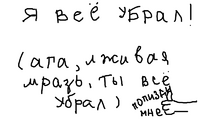 Я ВСЁ УБРАЛ!
(АГА, ЛЖИВАЯ
МРАЗЬ, ТЫ ВСЁ
УБРАЛ)
ПОПИЗДИ
МНЕ